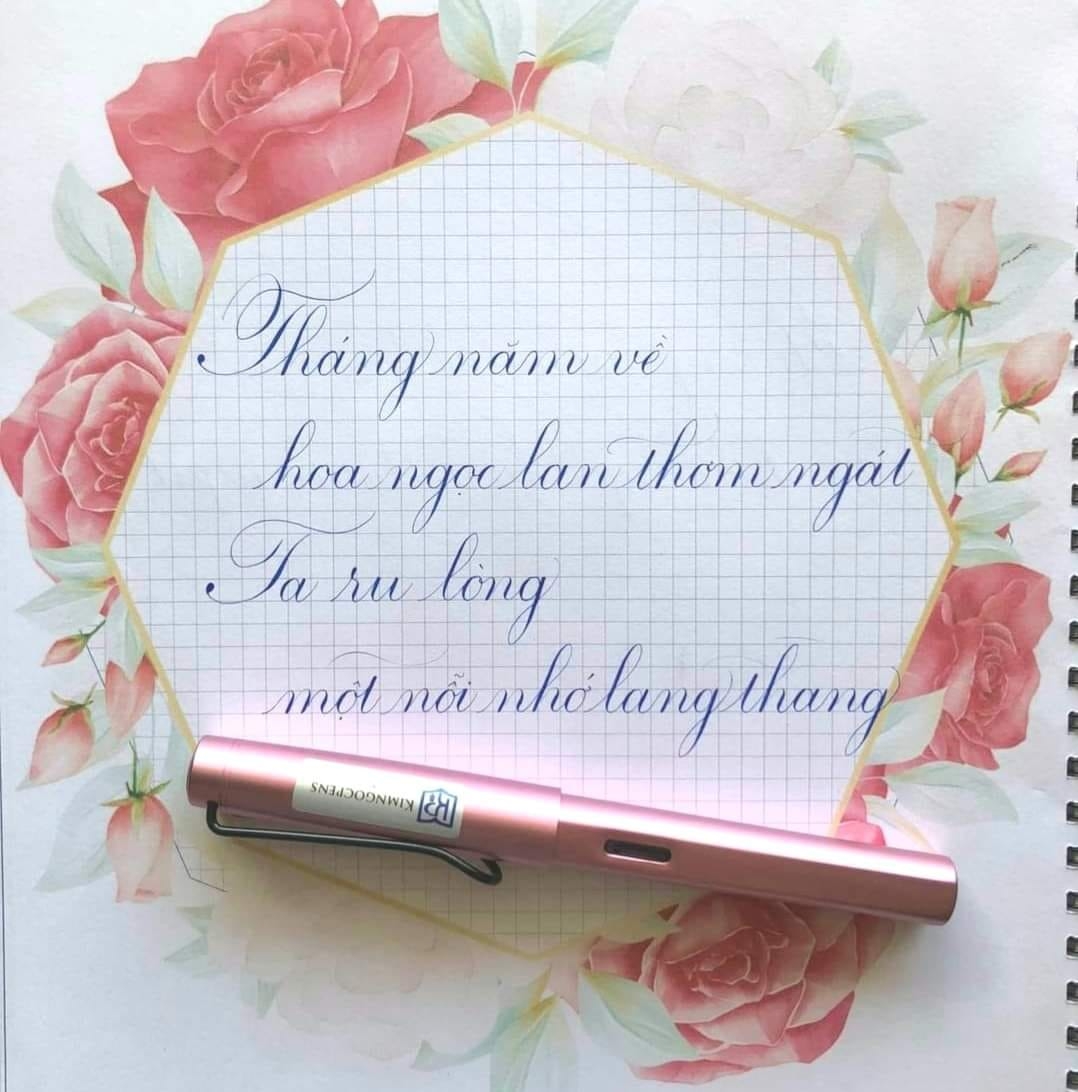 Tháng năm về
hoa ngọc lan thơm ngát
Ta ru lòng
một nỗi nhớ lang thang
KIMNGOCPENS